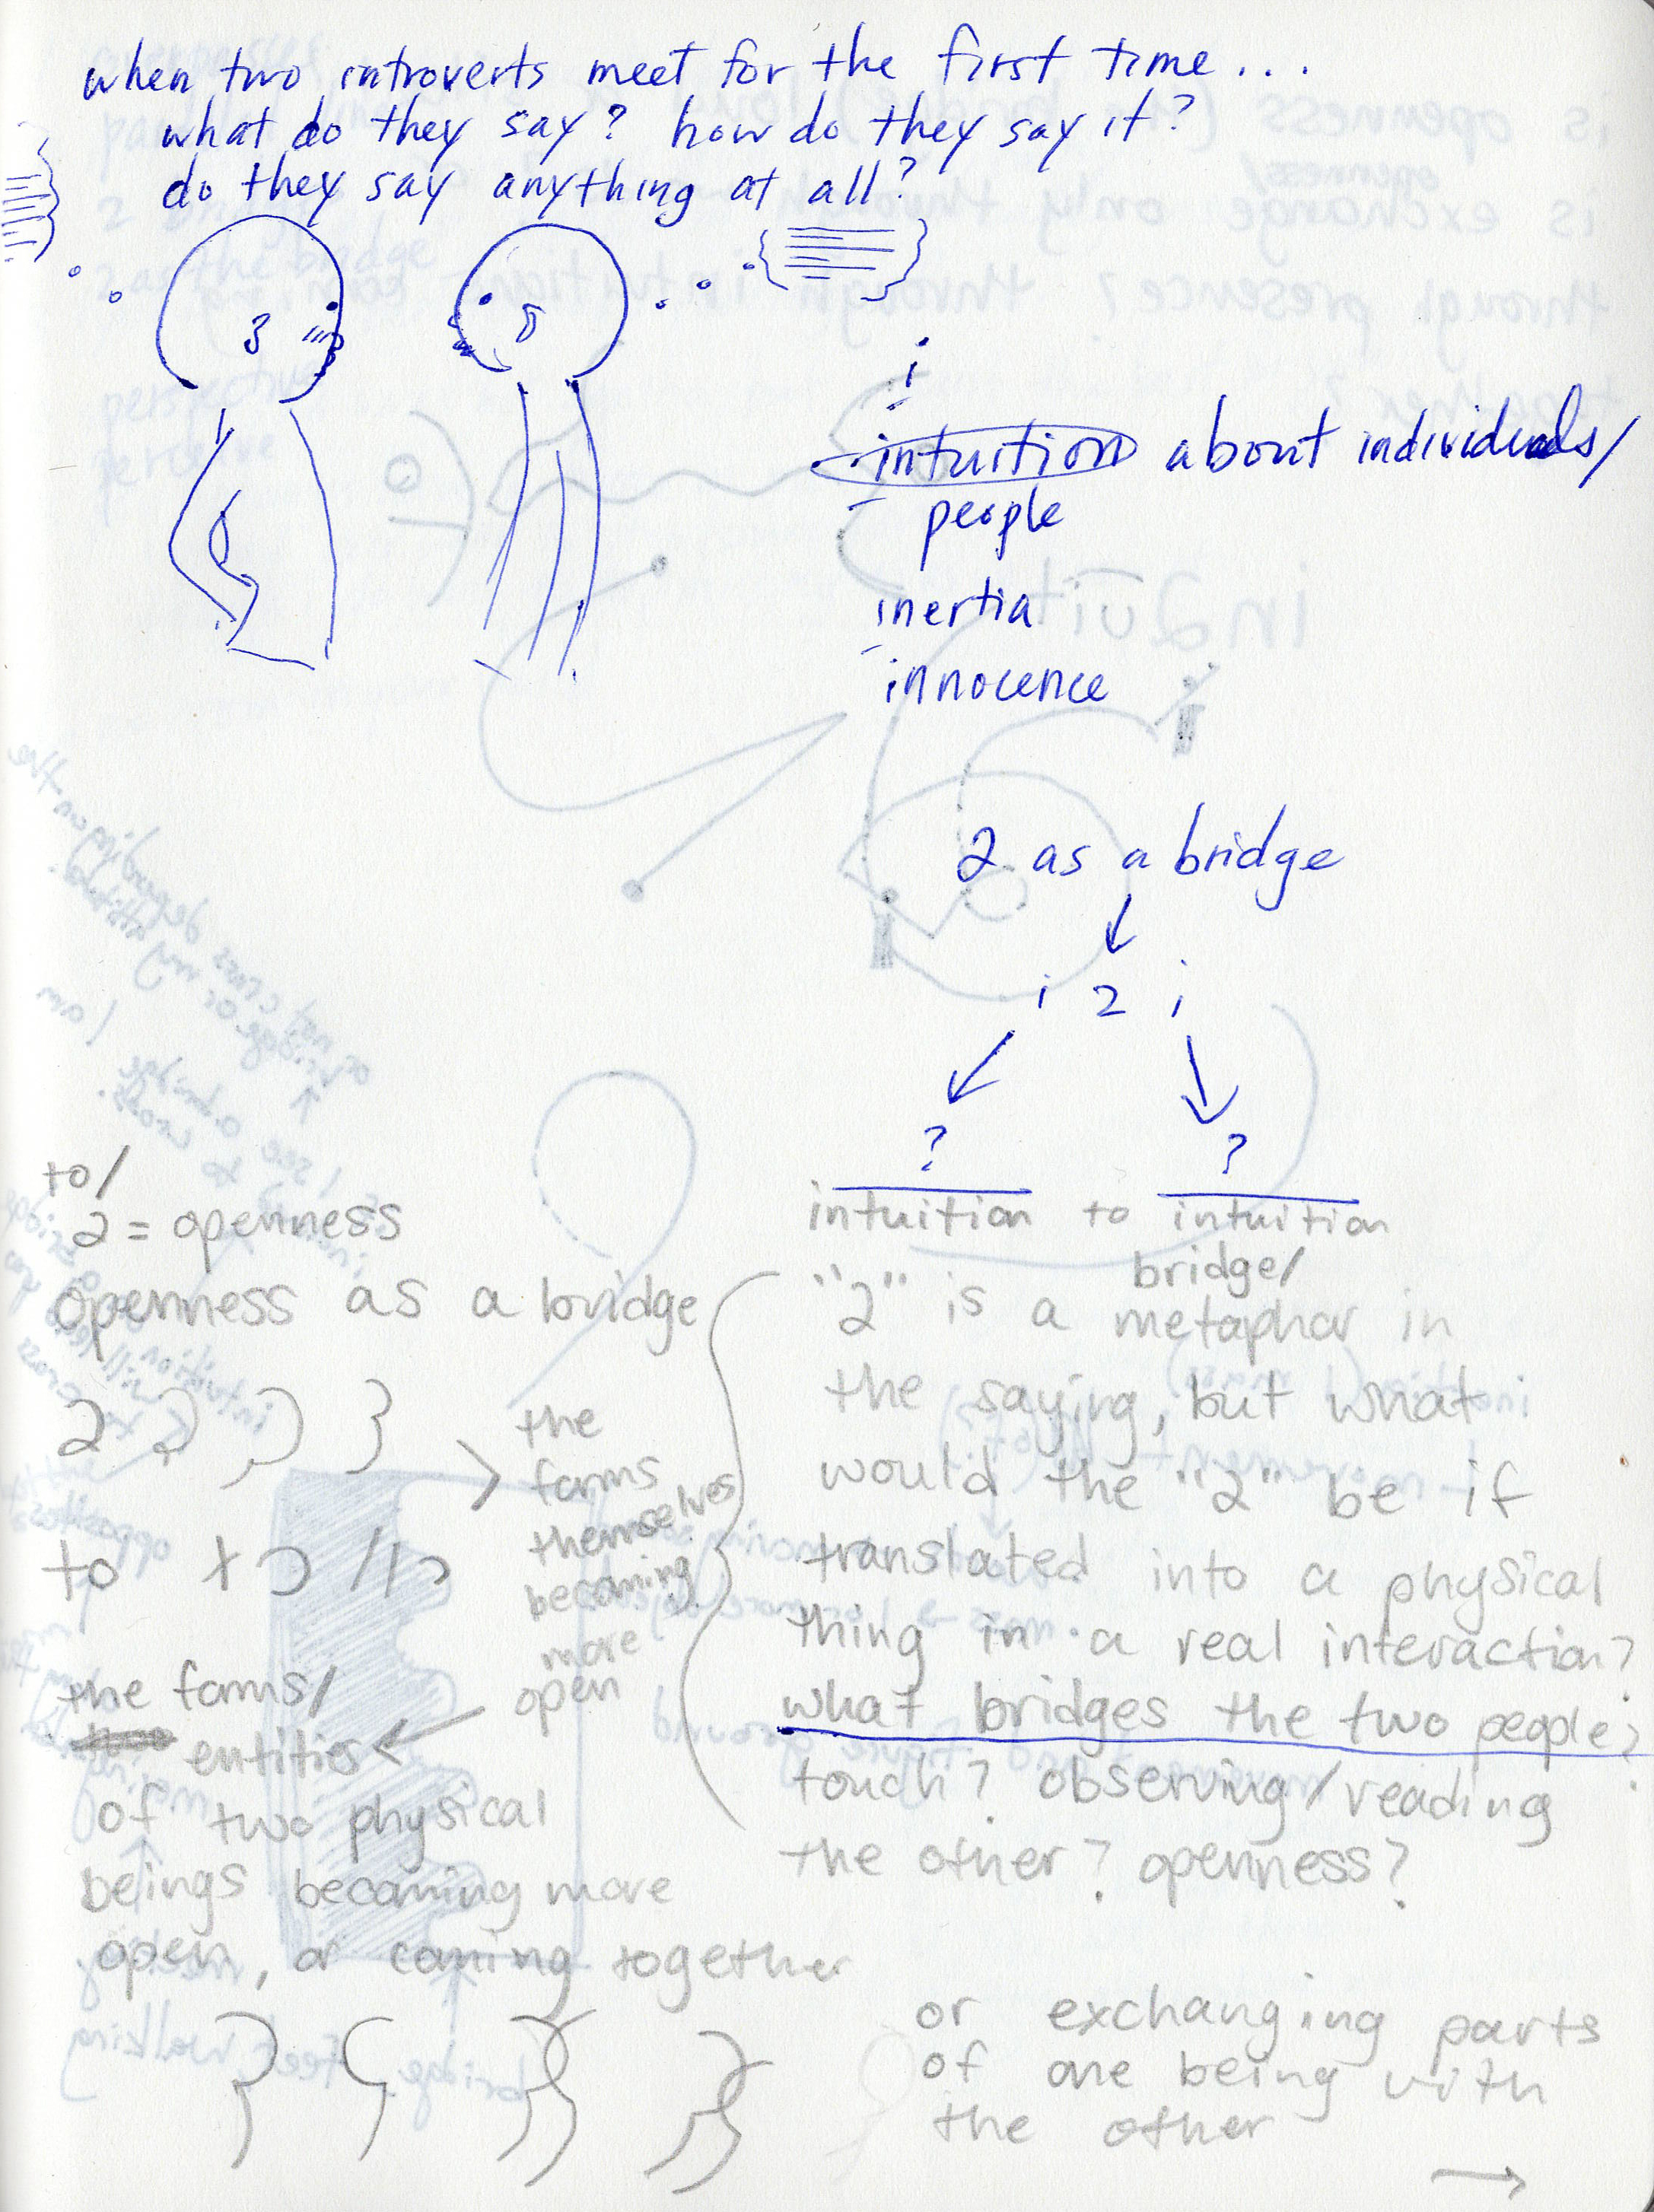 when two introverts meet for the first time...
what do they say? how do they say it?
do they say anything at all?
i
intuition about individuals/
people
inertia
innocence
2 as a bridge
i 2 i
? ?
intuition to intuition
to/
2 = openness
openness as a bridge
2
to
the
forms
themselves
becoming
more
open
the forms/
entities
of two physical
beings becoming more
open, or coming together
bridge/
"2" is a metaphor in
the saying, but what
would the "2" be if
translated into a physical
thing in a real interaction?
what bridges the two people?
touch? observing/reading
the other? openness?
or exchanging parts
of one being with
the other